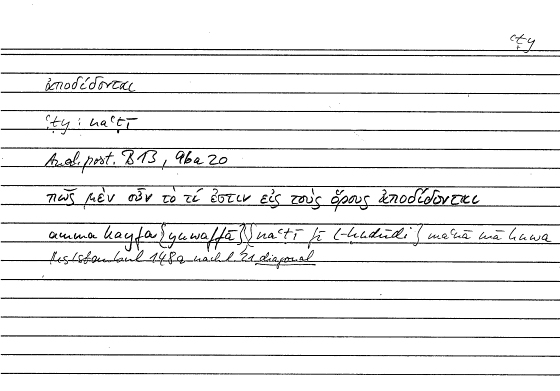 ʿṭy
ἀποδίδοται
ʿṭy : naʿṭī
Anal. post. B 13, 96a20
πῶς μὲν οὖν τὸ τί ἐστιν εἰς τοὺς ὅρους ἀποδίδοται
amma kayfa {yuwaffā} {naʿṭī fī l-ḥudūdi} maʿnā mā huwa
Ms Istanbul 148a nachl 21 diagonal